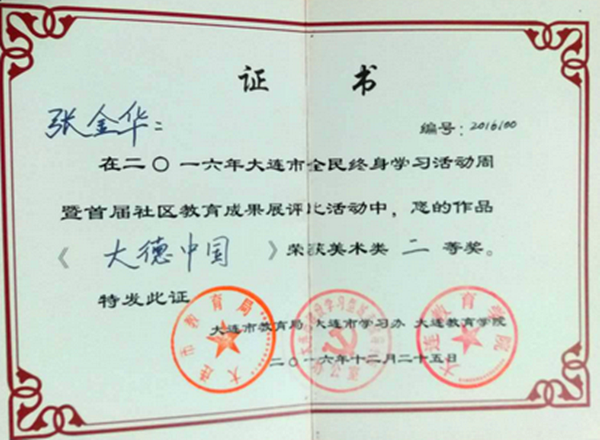 证 书
张金华：
编号：2016100
在二〇一六年大连市全民终身学习活动周
暨首届社区教育成果展评比活动中，您的作品
《 大德中国 》荣获美术类 二 等奖。
特发此证
大连市教育局 大连市学习办 大连教育学院
二〇一六年十二月二十五日
大连市教育局
大连教育学院